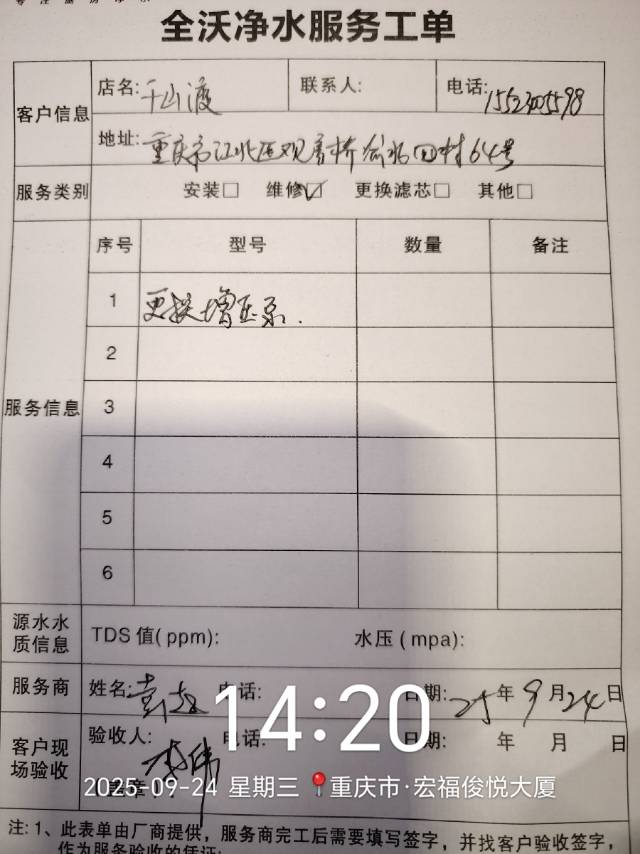 全沃净水服务工单
客户信息
店名:千山渡
联系人:
电话:
地址:重庆市江北区观音桥 田村64号
服务类别
安装□ 维修☑ 更换滤芯□ 其他□
服务信息
序号 型号 数量 备注
1 更换增压泵.
2
3
4
5
6
源水水质信息
TDS 值(ppm): 水压(mpa):
服务商
姓名: 电话: 日期:25年9月24日
客户现场验收
验收人: 电话: 日期: 年 月 日
盖章
14:20
2025-09-24 星期三 重庆市·宏福俊悦大厦
注: 1、此表单由厂商提供，服务商完工后需要填写签字，并找客户验收签字，
作为服务验收的凭证;